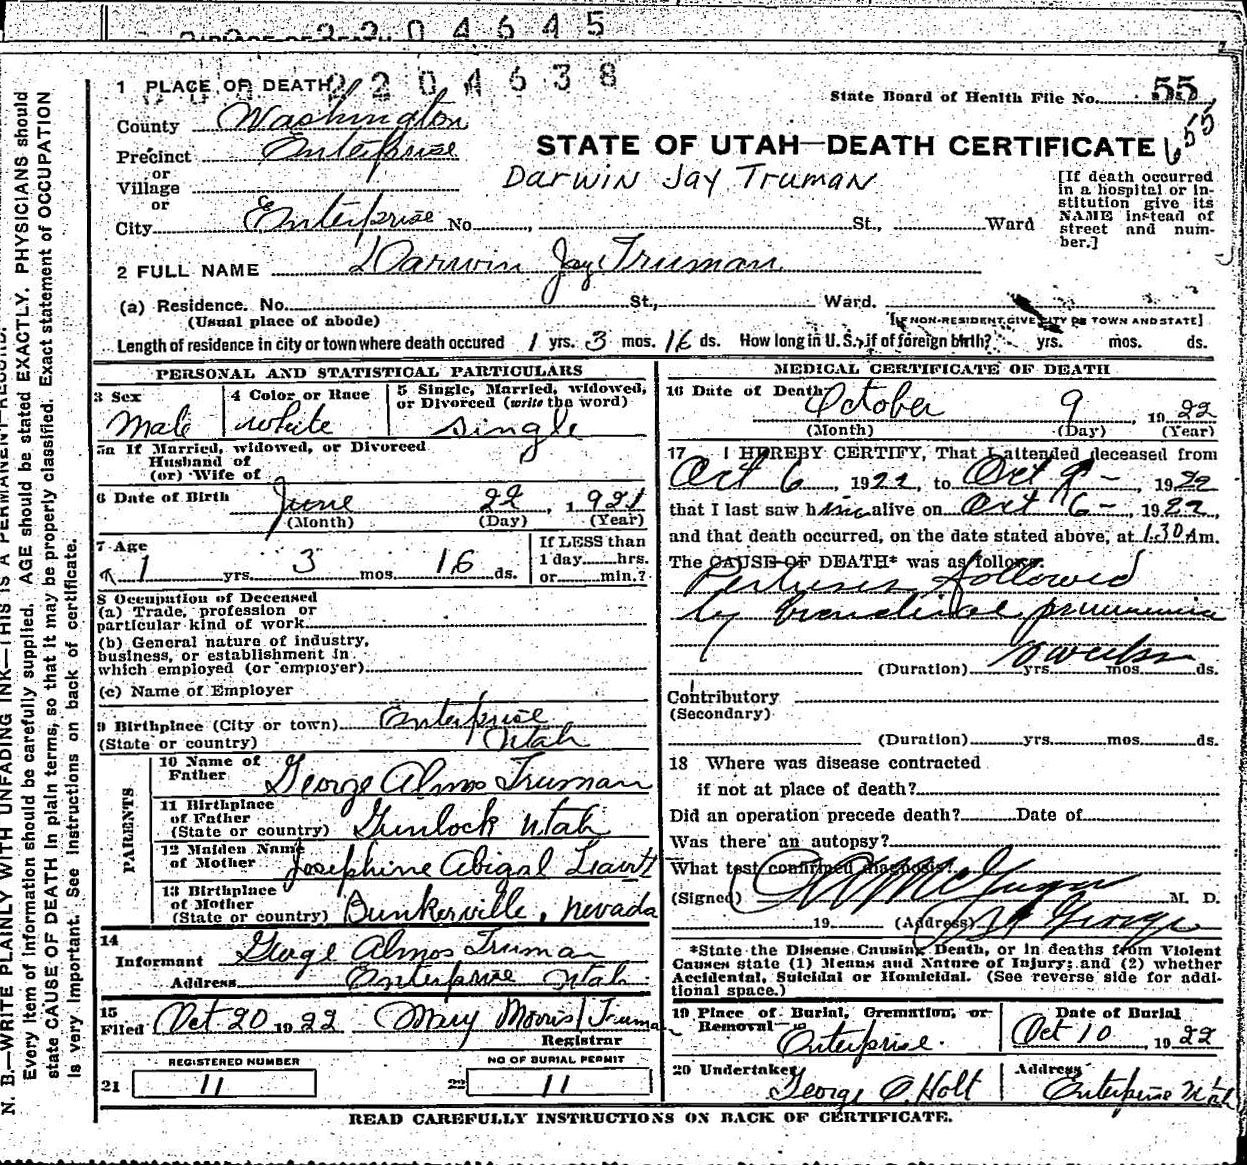 2204645
2204638
1 PLACE OF DEATH
State Board of Health File No. 55
County Washington
655
Precinct Enterprise
STATE OF UTAH—DEATH CERTIFICATE
or
Village
Darwin Jay Truman
or
City Enterprise No. St., Ward
[If death occurred
in a hospital or in-
stitution give its
NAME instead of
street and num-
ber.]
2 FULL NAME Darwin Jay Truman
(a) Residence. No. St., Ward.
(Usual place of abode)
[IF NON-RESIDENT, GIVE CITY OR TOWN AND STATE]
Length of residence in city or town where death occured 1 yrs. 3 mos. 16 ds. How long in U. S., if of foreign birth? yrs. mos. ds.
PERSONAL AND STATISTICAL PARTICULARS
3 Sex
Male
4 Color or Race
white
5 Single, Married, widowed,
or Divorced (write the word)
single
5a If Married, widowed, or Divorced
Husband of
(or) Wife of
6 Date of Birth June 22, 1921
(Month) (Day) (Year)
7 Age
1 yrs. 3 mos. 16 ds.
If LESS than
1 day hrs.
or min.?
8 Occupation of Deceased
(a) Trade, profession or
particular kind of work
(b) General nature of industry,
business, or establishment in
which employed (or employer)
(c) Name of Employer
9 Birthplace (City or town) Enterprise
(State or country) Utah
PARENTS
10 Name of
Father George Almos Truman
11 Birthplace
of Father
(State or country) Gunlock Utah
12 Maiden Name
of Mother Josephine Abigal Leavitt
13 Birthplace
of Mother
(State or country) Bunkerville, Nevada
14
Informant George Almos Truman
Address Enterprise Utah
15
Filed Oct 20 1922 Mary Morris Truman
Registrar
REGISTERED NUMBER
21 11
NO OF BURIAL PERMIT
22 11
MEDICAL CERTIFICATE OF DEATH
16 Date of Death
October 9, 1922
(Month) (Day) (Year)
17 I HEREBY CERTIFY, That I attended deceased from
Oct 6, 1922, to Oct 9 - 1922
that I last saw him alive on Oct 6 - 1922,
and that death occurred, on the date stated above, at 1:30 Am.
The CAUSE OF DEATH* was as follows:
Pertusis followed
by bronchial pneumonia
(Duration) weeks yrs. mos. ds.
Contributory
(Secondary)
(Duration) yrs. mos. ds.
18 Where was disease contracted
if not at place of death?
Did an operation precede death? Date of
Was there an autopsy?
What test confirmed diagnosis?
(Signed) McGregor M. D.
19 (Address) St George
*State the Disease Causing Death, or in deaths from Violent
Causes state (1) Means and Nature of Injury; and (2) whether
Accidental, Suicidal or Homicidal. (See reverse side for addi-
tional space.)
19 Place of Burial, Cremation, or
Removal
Enterprise.
Date of Burial
Oct 10, 1922
20 Undertaker
George O. Holt
Address
Enterprise Utah
READ CAREFULLY INSTRUCTIONS ON BACK OF CERTIFICATE.
N. B.—WRITE PLAINLY WITH UNFADING INK—THIS IS A PERMANENT RECORD.
Every item of information should be carefully supplied. AGE should be stated EXACTLY. PHYSICIANS should
state CAUSE OF DEATH in plain terms, so that it may be properly classified. Exact statement of OCCUPATION
is very important. See instructions on back of certificate.